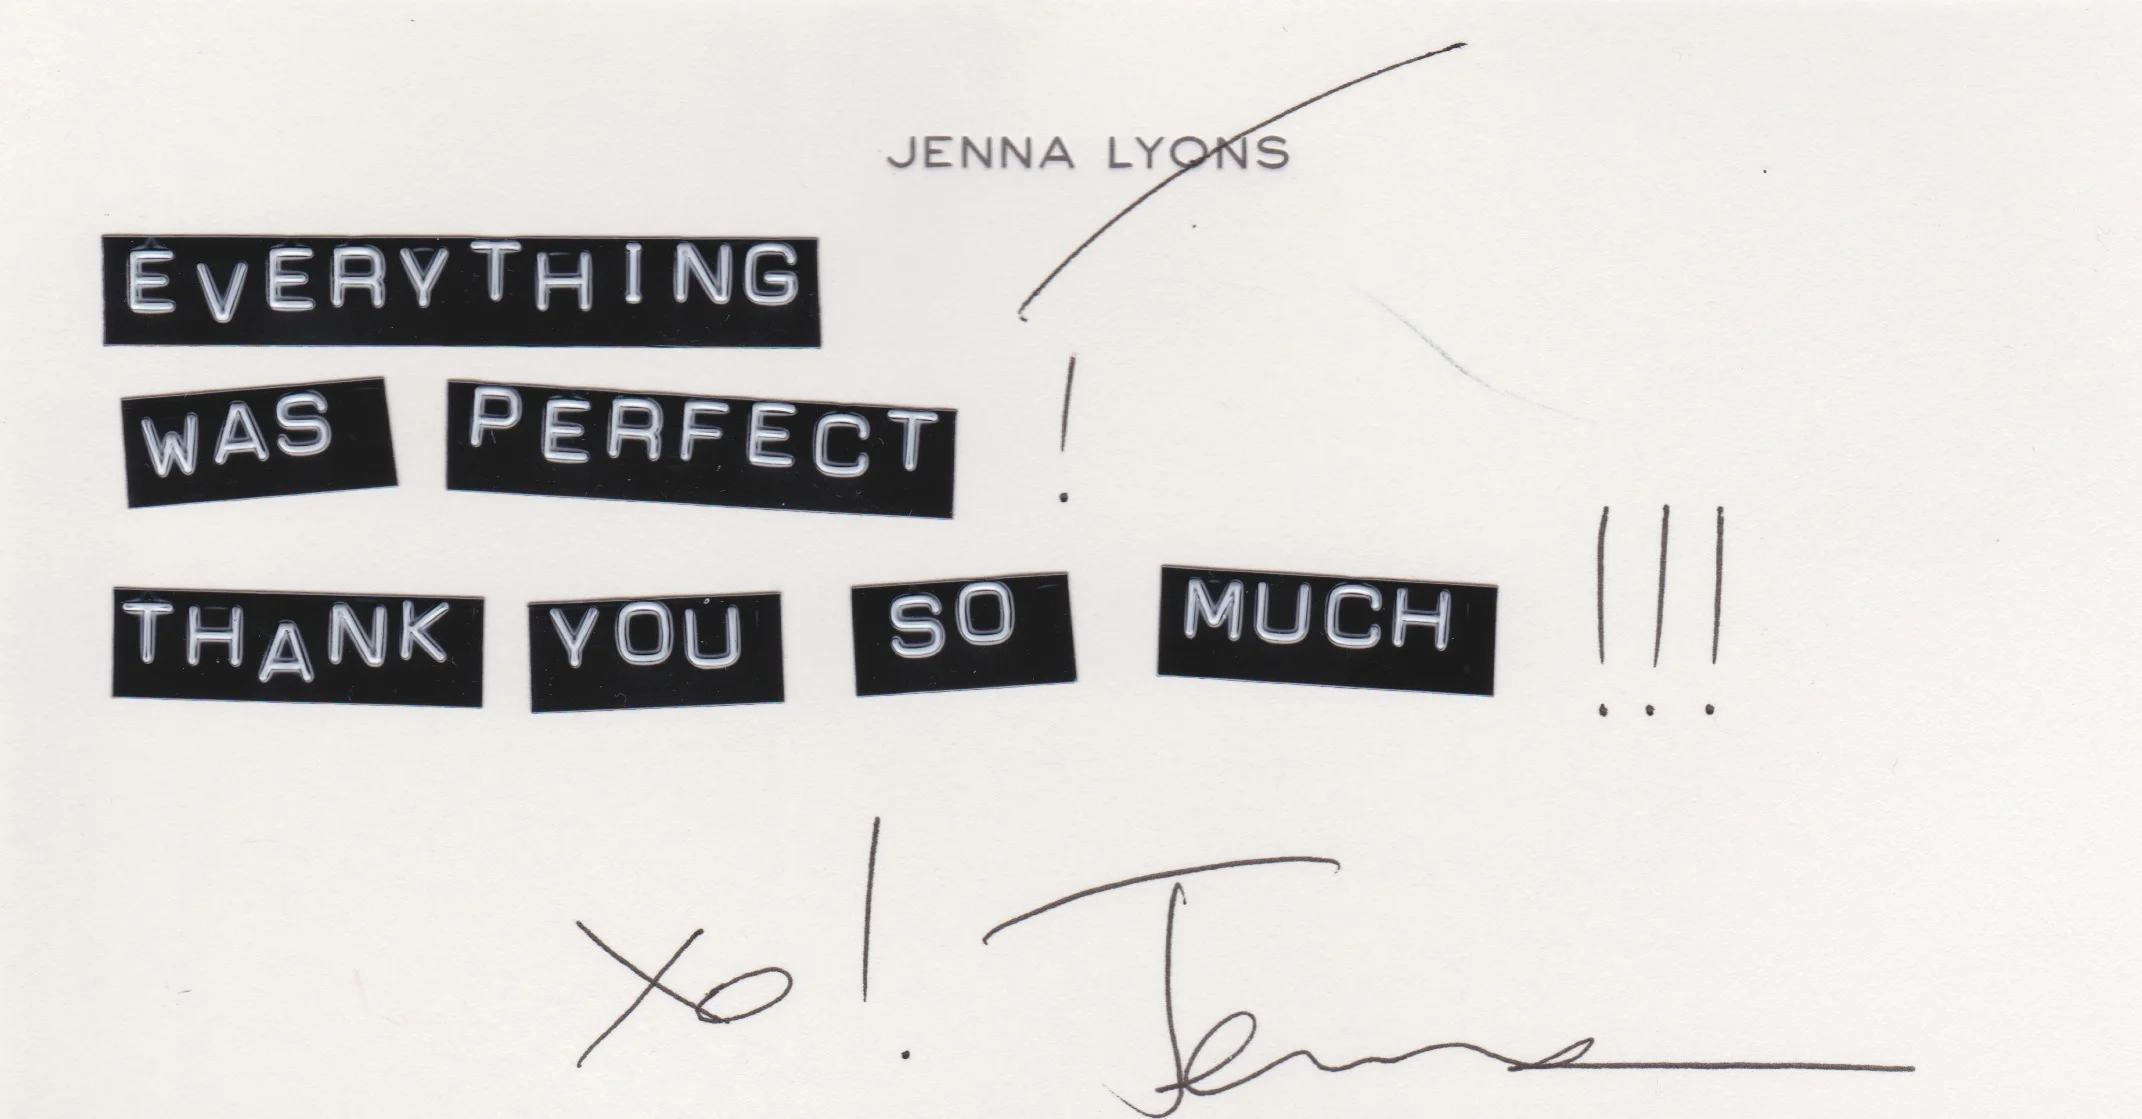 JENNA LYONS
EVERYTHING
WAS PERFECT !
THANK YOU SO MUCH !!!
xo! Jenna